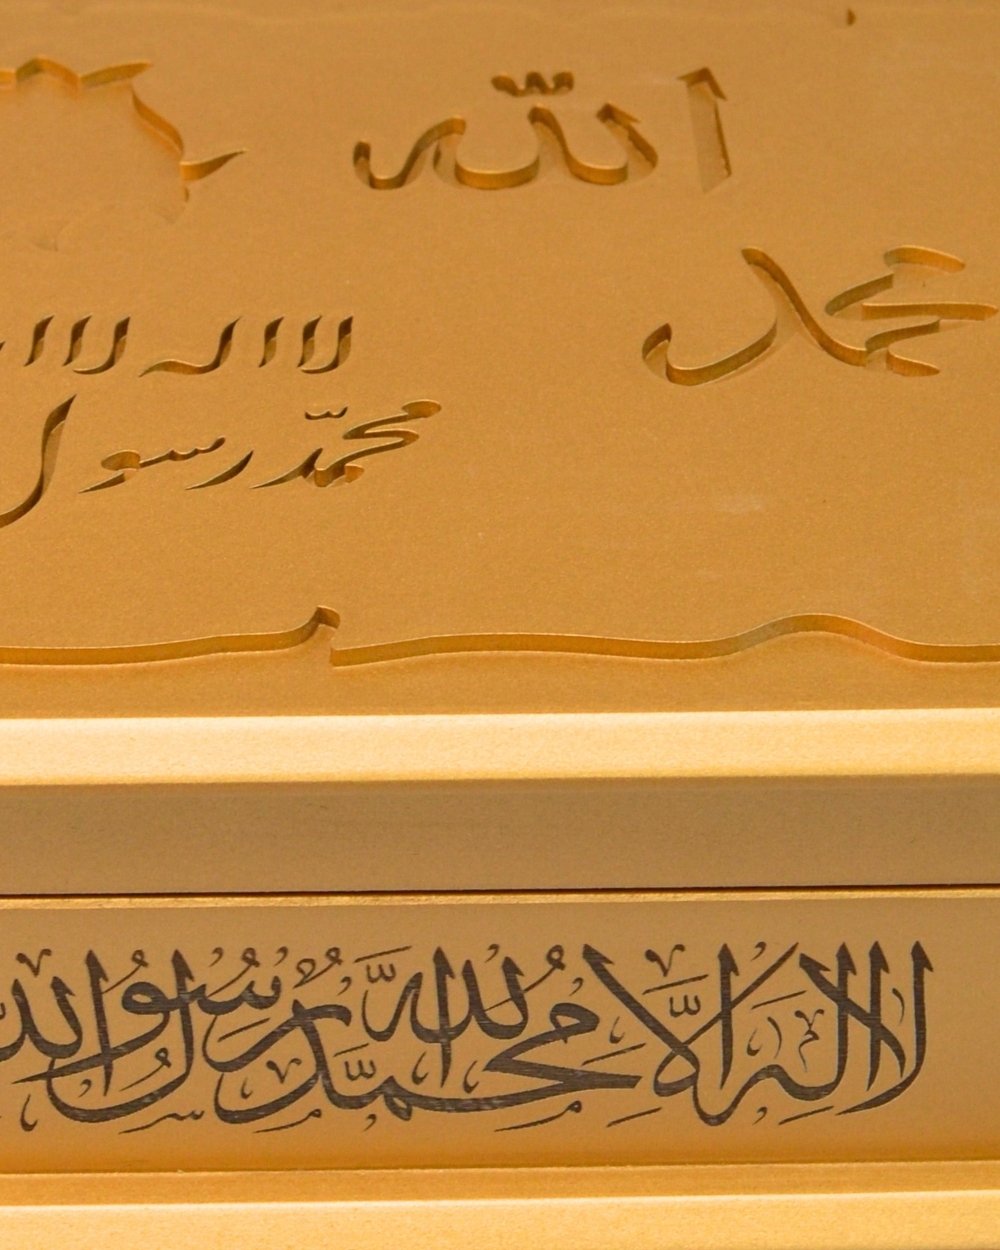 الله
محمد
لا اله الا
محمّد رسول
لا إله إلا الله محمد رسول الله